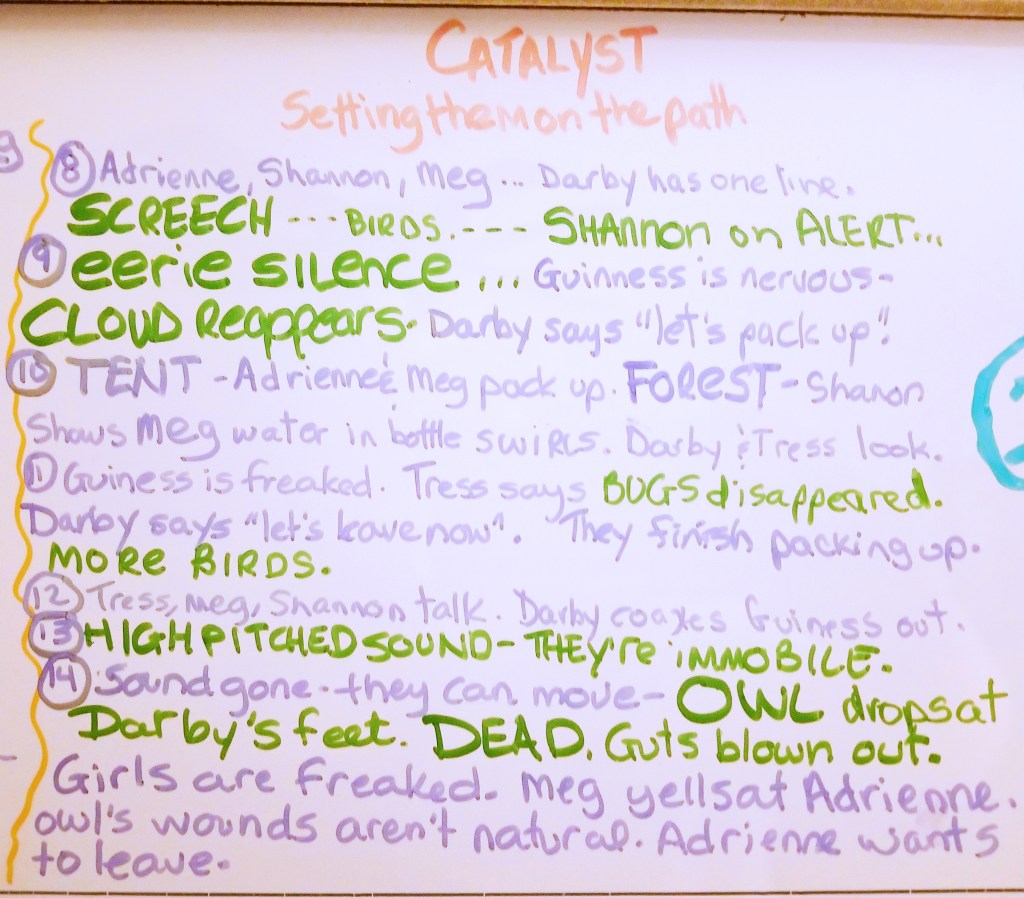 CATALYST
Setting them on the path
⑧ Adrienne, Shannon, Meg... Darby has one line.
SCREECH --- BIRDS.---- SHANNON on ALERT...
⑨ eerie SILENCE ... Guinness is nervous-
CLOUD Reappears. Darby says "let's pack up".
⑩ TENT - Adrienne & Meg pack up. FOREST - Shanon
Shows Meg water in bottle SWIRLS. Darby & Tress look.
⑪ Guiness is freaked. Tress says BUGS disappeared.
Darby says "let's leave now". They finish packing up.
MORE BIRDS.
⑫ Tress, Meg, Shannon talk. Darby coaxes Guiness out.
⑬ HIGH PITCHED SOUND - THEY're iMMOBILE.
⑭ Sound gone - they can move - OWL drops at
Darby's feet. DEAD. Guts blown out.
Girls are freaked. Meg yells at Adrienne.
owl's wounds aren't natural. Adrienne wants
to leave.